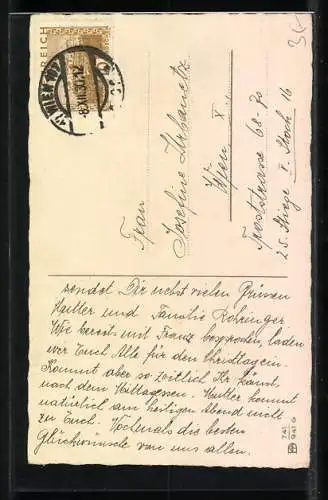 REICH
WIEN 107
21.XII.30.18
Frau
Josefine Urbanetz
Wien X.
Troststrasse 68-70
25. Stiege I. Stock 16
sendet Dir nebst vielen Grüssen
Mutter und Familie Rohringer
Wie bereits mit Franz besprochen, laden
wir Euch Alle für den Christtag ein.
Kommt aber so zeitlich Ihr könnt,
nach dem Mittagessen. Mutter kommt
natürlich am heiligen Abend nicht
zu Euch. Nochmals die besten
Glückwünsche von uns allen.
741
941 G